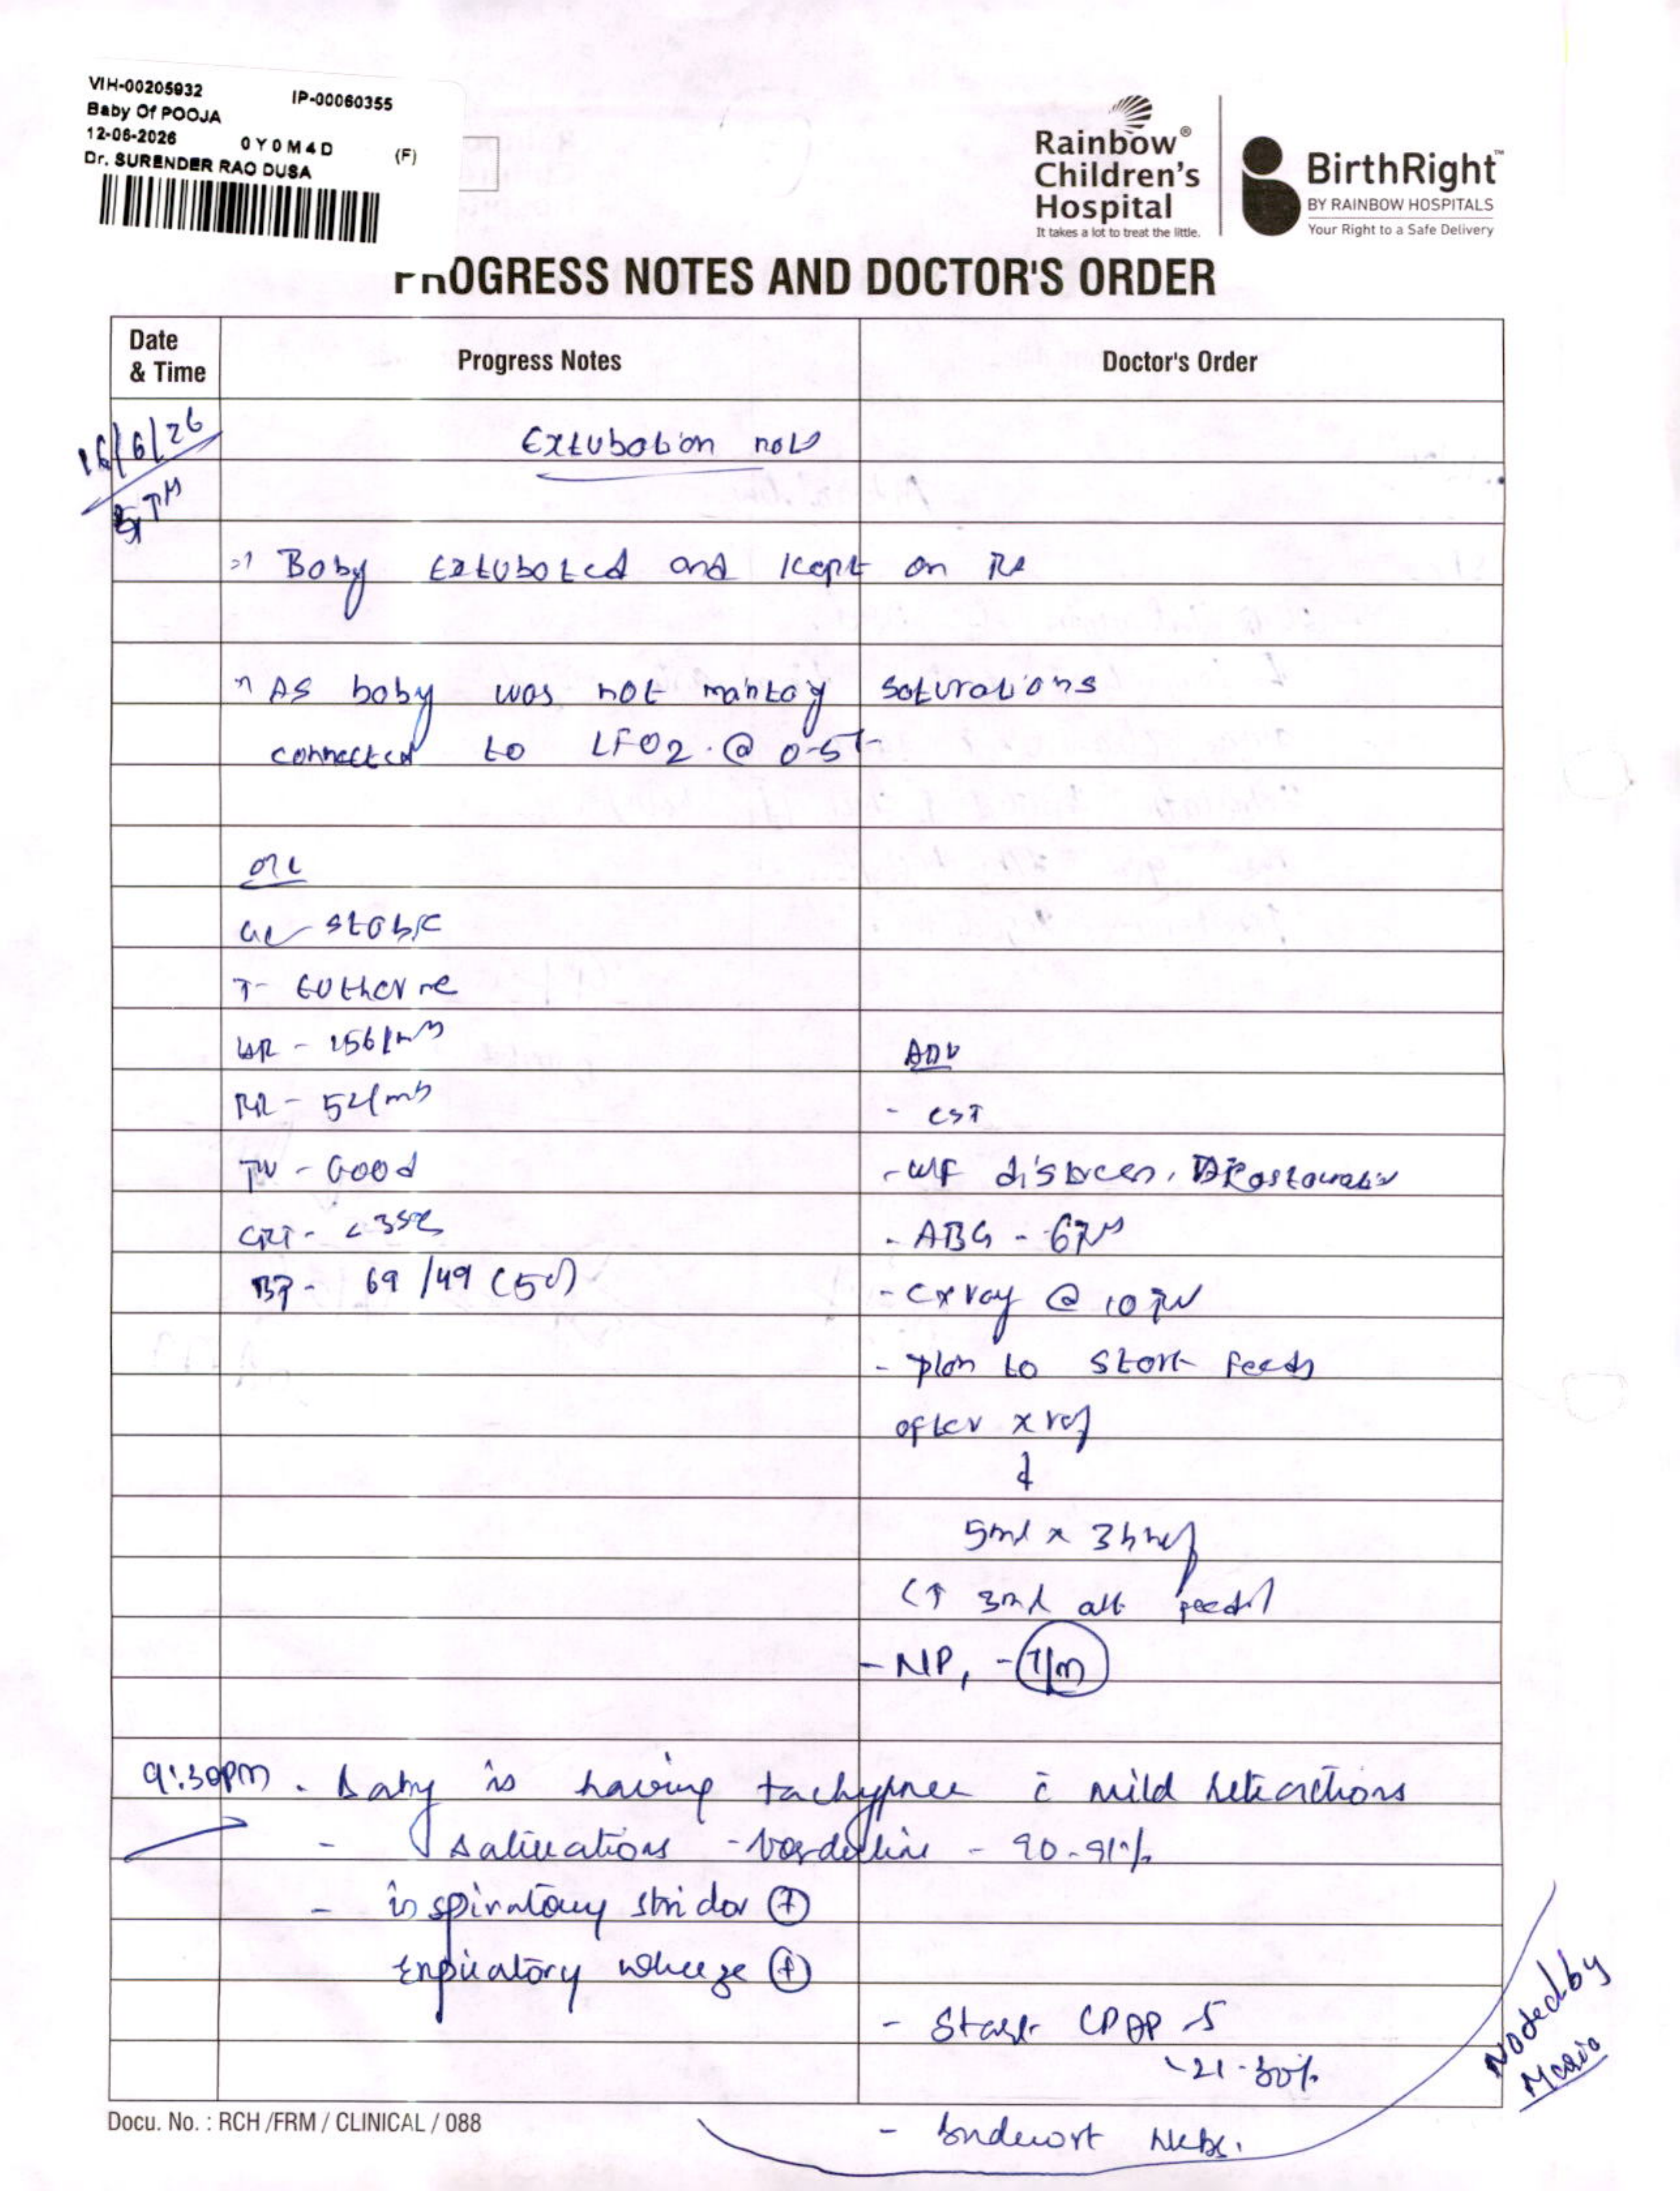 VIH-00205932 IP-00060355
Baby Of POOJA
12-06-2026 0Y0M4D (F)
Dr. SURENDER RAO DUSA
Rainbow®
Children's
Hospital
It takes a lot to treat the little.
BirthRight™
BY RAINBOW HOSPITALS
Your Right to a Safe Delivery
PROGRESS NOTES AND DOCTOR'S ORDER
Date
& Time
Progress Notes
Doctor's Order
16/6/26
5 PM
Extubation note
Baby extubated and kept on RA
As baby was not saturations
connected to LFO2 @ 0.5L
O/E
GC - stable
T - Eutherme
HR - 156/min
RR - 52/min
- Good
CRT - <3sec
BP - 69/49 (50)
Adv
- CST
- W/F distress,
- ABG - 6PM
- Cxray @ 10 PM
- plan to start feeds
after xray
↓
5ml x 3hrly
(↑ 3ml alt feeds)
- NP, - T/m
9:30pm - Baby is having tachypnea c̄ mild retractions
- saturations - borderline - 90-91%
- inspiratory stridor (+)
Expiratory wheeze (+)
- Start CPAP - 5
- 21-30%
- Budecort Nebs.
Noted by
Docu. No. : RCH /FRM / CLINICAL / 088